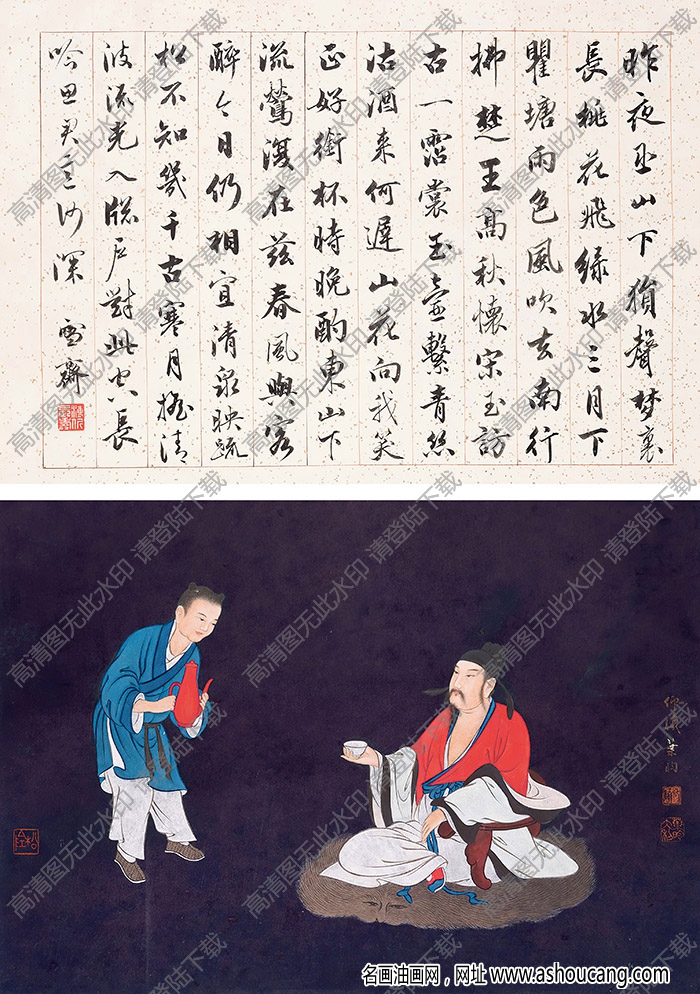 昨夜巫山下猿聲梦裏
長桃花飛綠水三月下
瞿塘雨色風吹去南行
拂楚王高秋懷宋玉訪
古一霑裳玉壺繫青絲
沽酒来何遲山花向我笑
正好銜杯時晚酌東山下
流鶯復在茲春風與客
醉今日仍相宜清泉映疏
松不知幾千古寒月摇清
波流光入牕户對此空長
吟思君意何深 雪齋
高清图无此水印 请登陆下载
名画油画网，网址 www.ashoucang.com